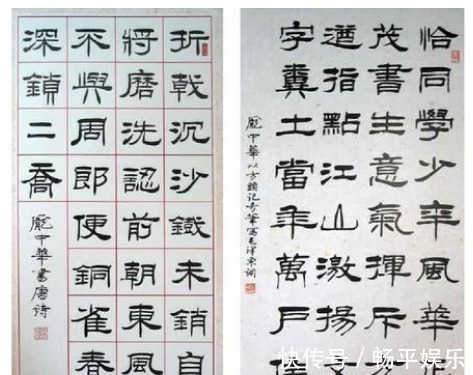 折戟沉沙鐵未銷自
將磨洗認前朝東風
不與周郎便銅雀春
深鎖二喬
龐中華書唐詩
恰同學少年風華
茂書生意氣揮斥
遒指點江山激揚
字糞土當年萬戶
龐中華以方頭記号筆寫毛澤東詞
快传号 / 畅平娱乐